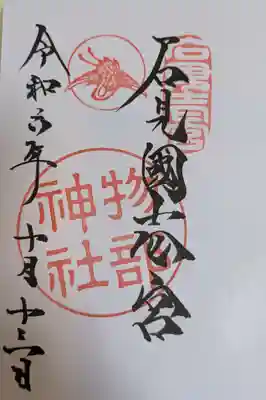 石見國一之宮
物部
神社
令和六年十月十三日